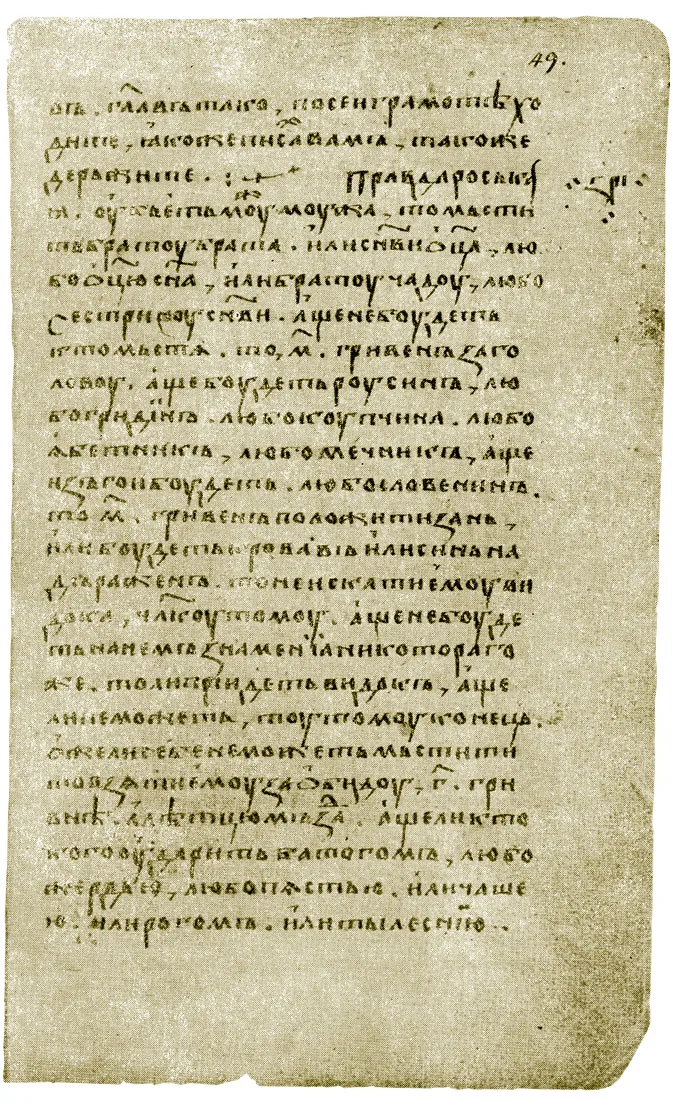 49.
вѣ. гл҃авъ тако, по сеи грамотѣ хо
дите, ꙗкоже писа вамъ, такоже
держите. Правда роськаꙗ
а. оубьеть моуж моужа, то мьсти
ть братоу брата. или сн҃ви ѡц҃а, лю
бо ѡц҃ю сн҃а, или братоу чадоу, любо
сестриноу сн҃ви. аще не боудеть
кто мьстѧ. то, м҃. гривенъ за го
ловоу. аще боудеть роусинъ, лю
бо гридинъ. любо коупчина. любо
ѧбетникъ, любо мечникъ, аще
изъгои боудеть. любо словенинъ.
то м҃. гривенъ положити зань,
или боудеть кровавъ или синь на
дъраженъ. то не искати емоу ви
дока, чл҃коу томоу. аще не боуде
ть на немъ знаменіа никотораго
же. толи приидеть видокъ, аще
ли не можеть, тоу томоу конець.
оже ли себе не можеть мьстити
то взѧти емоу за ѡбидоу, г҃. гри
внѣ. а лѣтцю мъзда. аще ли кто
кого оударить батогомъ, любо
жердью, любо пѧстью. или чашею
ю. или рогомъ. или тылеснию.